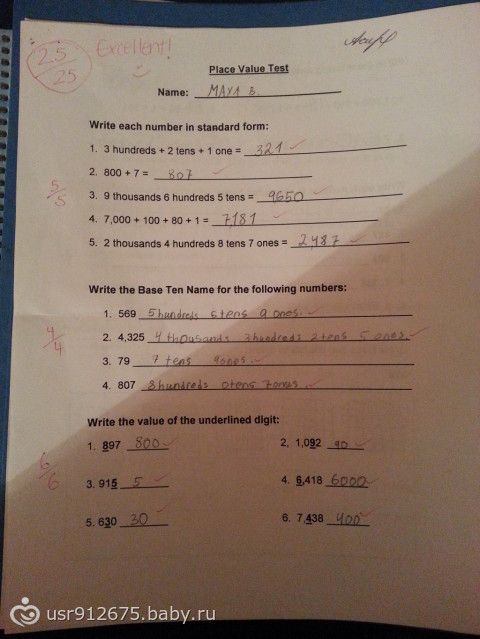 25/25 Excellent!
Place Value Test
Name: MAYA B.
Write each number in standard form:
1. 3 hundreds + 2 tens + 1 one = 321
2. 800 + 7 = 807
5/5
3. 9 thousands 6 hundreds 5 tens = 9650
4. 7,000 + 100 + 80 + 1 = 7181
5. 2 thousands 4 hundreds 8 tens 7 ones = 2,487
Write the Base Ten Name for the following numbers:
1. 569 5 hundreds 6 tens 9 ones.
4/4
2. 4,325 4 thousands 3 hundreds 2 tens 5 ones.
3. 79 7 tens 9 ones.
4. 807 8 hundreds 0 tens 7 ones.
Write the value of the underlined digit:
1. 897 800 2, 1,092 90
6/6
3. 915 5 4. 6,418 6000
5. 630 30 6. 7,438 400
usr912675.baby.ru